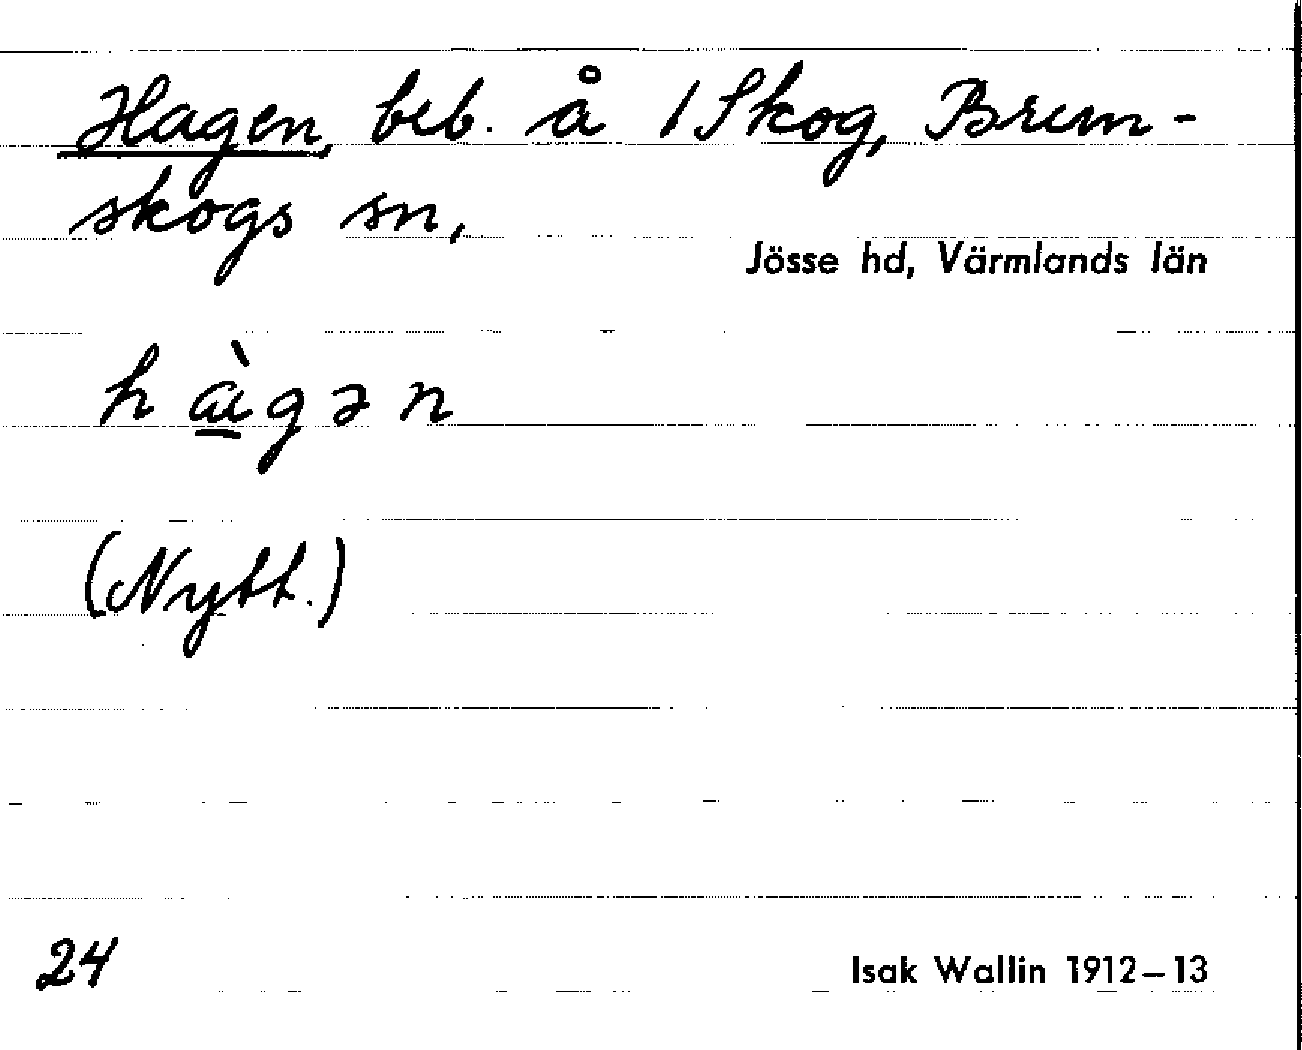 Hagen, beb. å 1 Skog, Brun-
skogs sn,
Jösse hd, Värmlands län
h à̱gən
(Nytt.)
24
Isak Wallin 1912–13